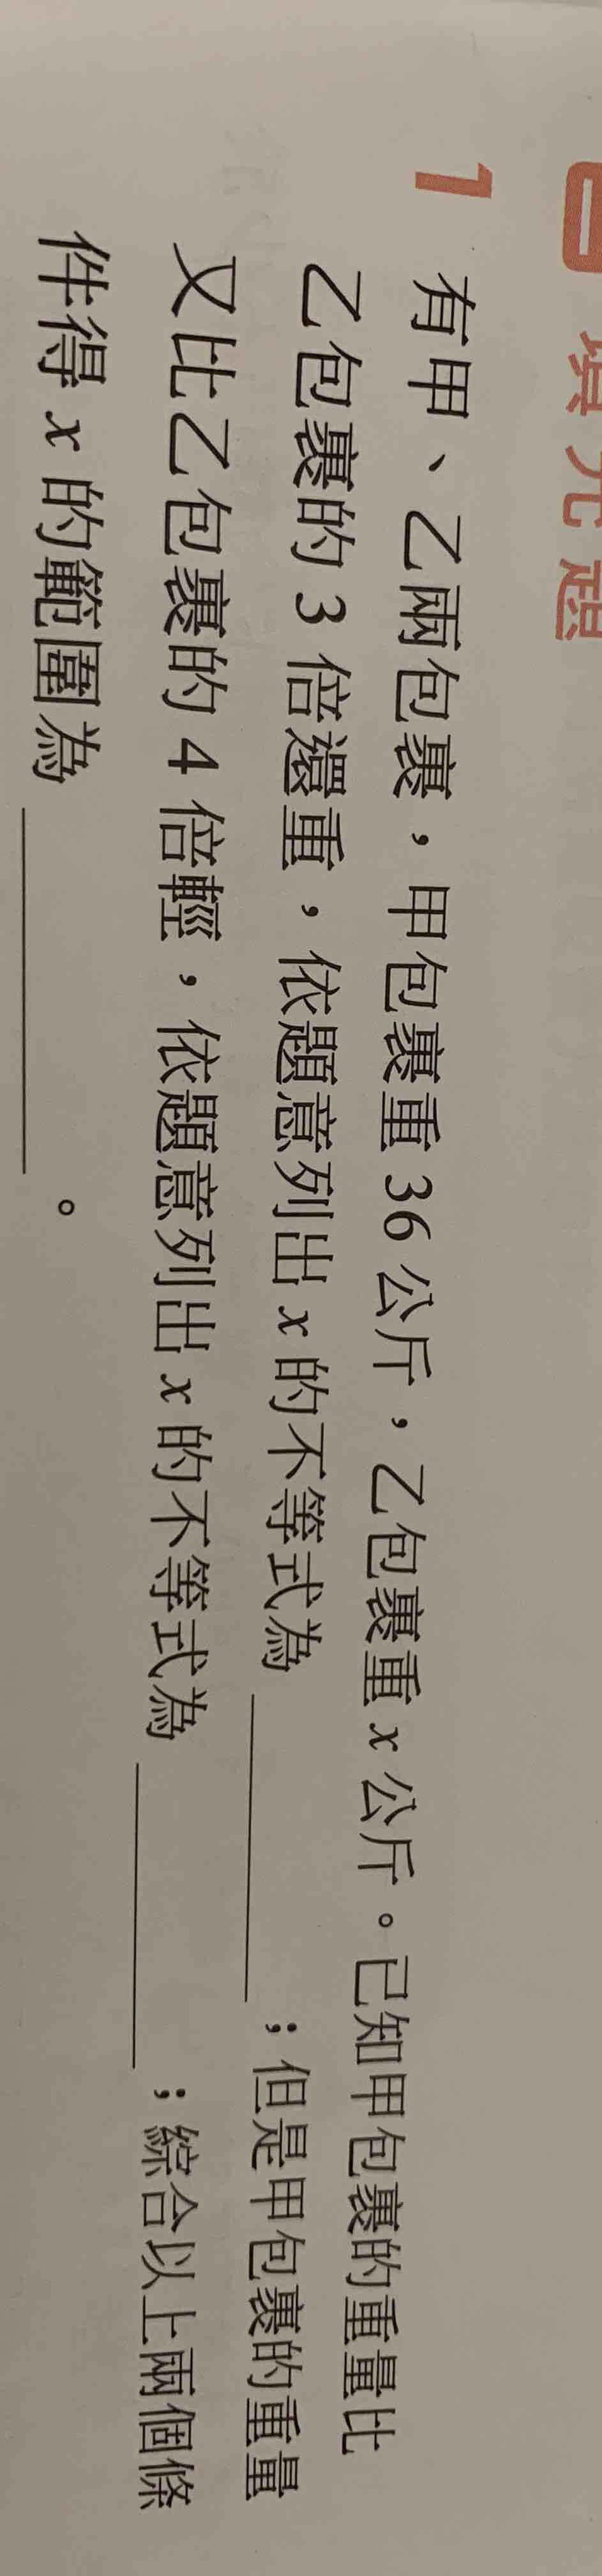 填充題
1 有甲、乙兩包裹，甲包裹重 36 公斤，乙包裹重 x 公斤。已知甲包裹的重量比
乙包裹的 3 倍還重，依題意列出 x 的不等式為＿＿＿＿＿；但是甲包裹的重量
又比乙包裹的 4 倍輕，依題意列出 x 的不等式為＿＿＿＿＿；綜合以上兩個條
件得 x 的範圍為＿＿＿＿＿。